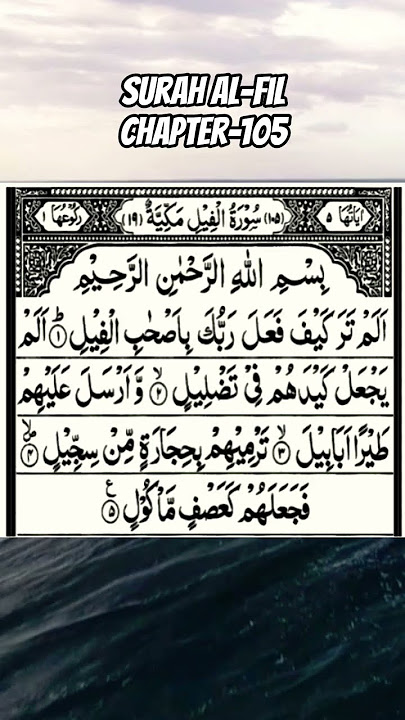 SURAH AL-FIL
CHAPTER-105
اٰيَاتُهَا ٥ (١٠٥) سُوْرَةُ الْفِيْلِ مَكِّيَّةٌ (١٩) رُكُوْعُهَا ١
بِسْمِ اللهِ الرَّحْمٰنِ الرَّحِيْمِ
اَلَمْ تَرَ كَيْفَ فَعَلَ رَبُّكَ بِاَصْحٰبِ الْفِيْلِ ؕ۝١ اَلَمْ
يَجْعَلْ كَيْدَهُمْ فِيْ تَضْلِيْلٍ ۙ۝٢ وَّاَرْسَلَ عَلَيْهِمْ
طَيْرًا اَبَابِيْلَ ۙ۝٣ تَرْمِيْهِمْ بِحِجَارَةٍ مِّنْ سِجِّيْلٍ ۪ۙ۝٤
فَجَعَلَهُمْ كَعَصْفٍ مَّاْكُوْلٍ ع۝٥